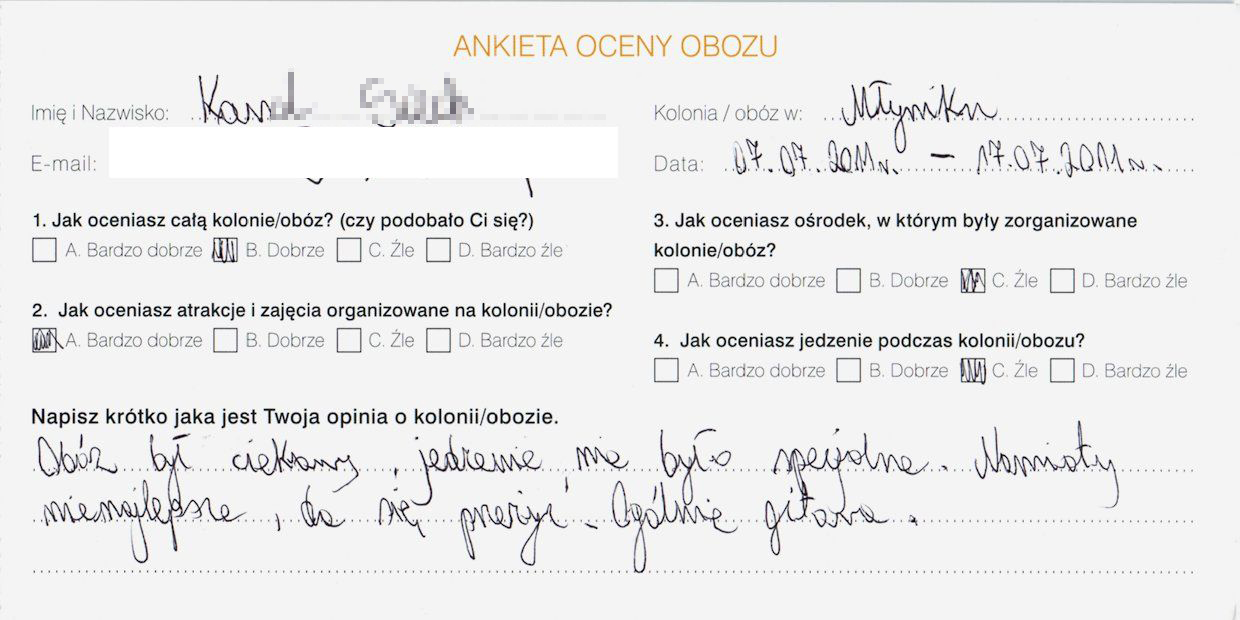 ANKIETA OCENY OBOZU
Imię i Nazwisko:
E-mail:
Kolonia / obóz w: Młyniku
Data: 07.07.2011r. – 17.07.2011r.
1. Jak oceniasz całą kolonie/obóz? (czy podobało Ci się?)
A. Bardzo dobrze B. Dobrze C. Źle D. Bardzo źle
2. Jak oceniasz atrakcje i zajęcia organizowane na kolonii/obozie?
A. Bardzo dobrze B. Dobrze C. Źle D. Bardzo źle
3. Jak oceniasz ośrodek, w którym były zorganizowane
kolonie/obóz?
A. Bardzo dobrze B. Dobrze C. Źle D. Bardzo źle
4. Jak oceniasz jedzenie podczas kolonii/obozu?
A. Bardzo dobrze B. Dobrze C. Źle D. Bardzo źle
Napisz krótko jaka jest Twoja opinia o kolonii/obozie.
Obóz był ciekawy, jedzenie nie było specjalne. Namioty
nienajlepsze, da się przeżyć. Ogólnie gitara.